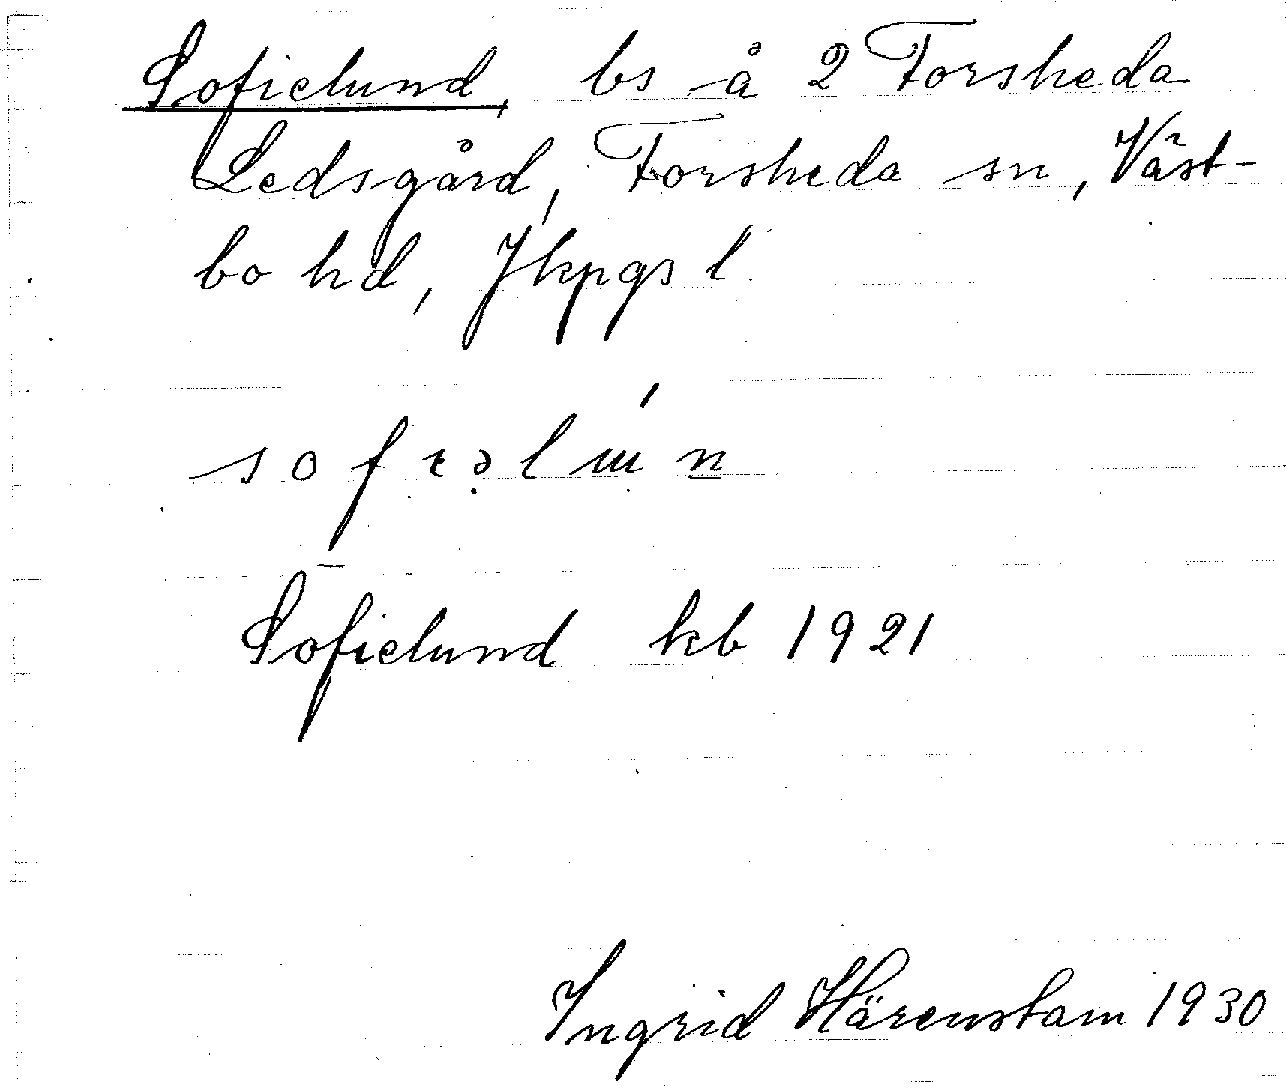 Sofielund, bs å 2 Forsheda
Ledsgård, Forsheda sn, Väst-
bo hd, Jkpgs l
sofɪəlɯ́n
Sofielund kb 1921
Ingrid Härenstam 1930